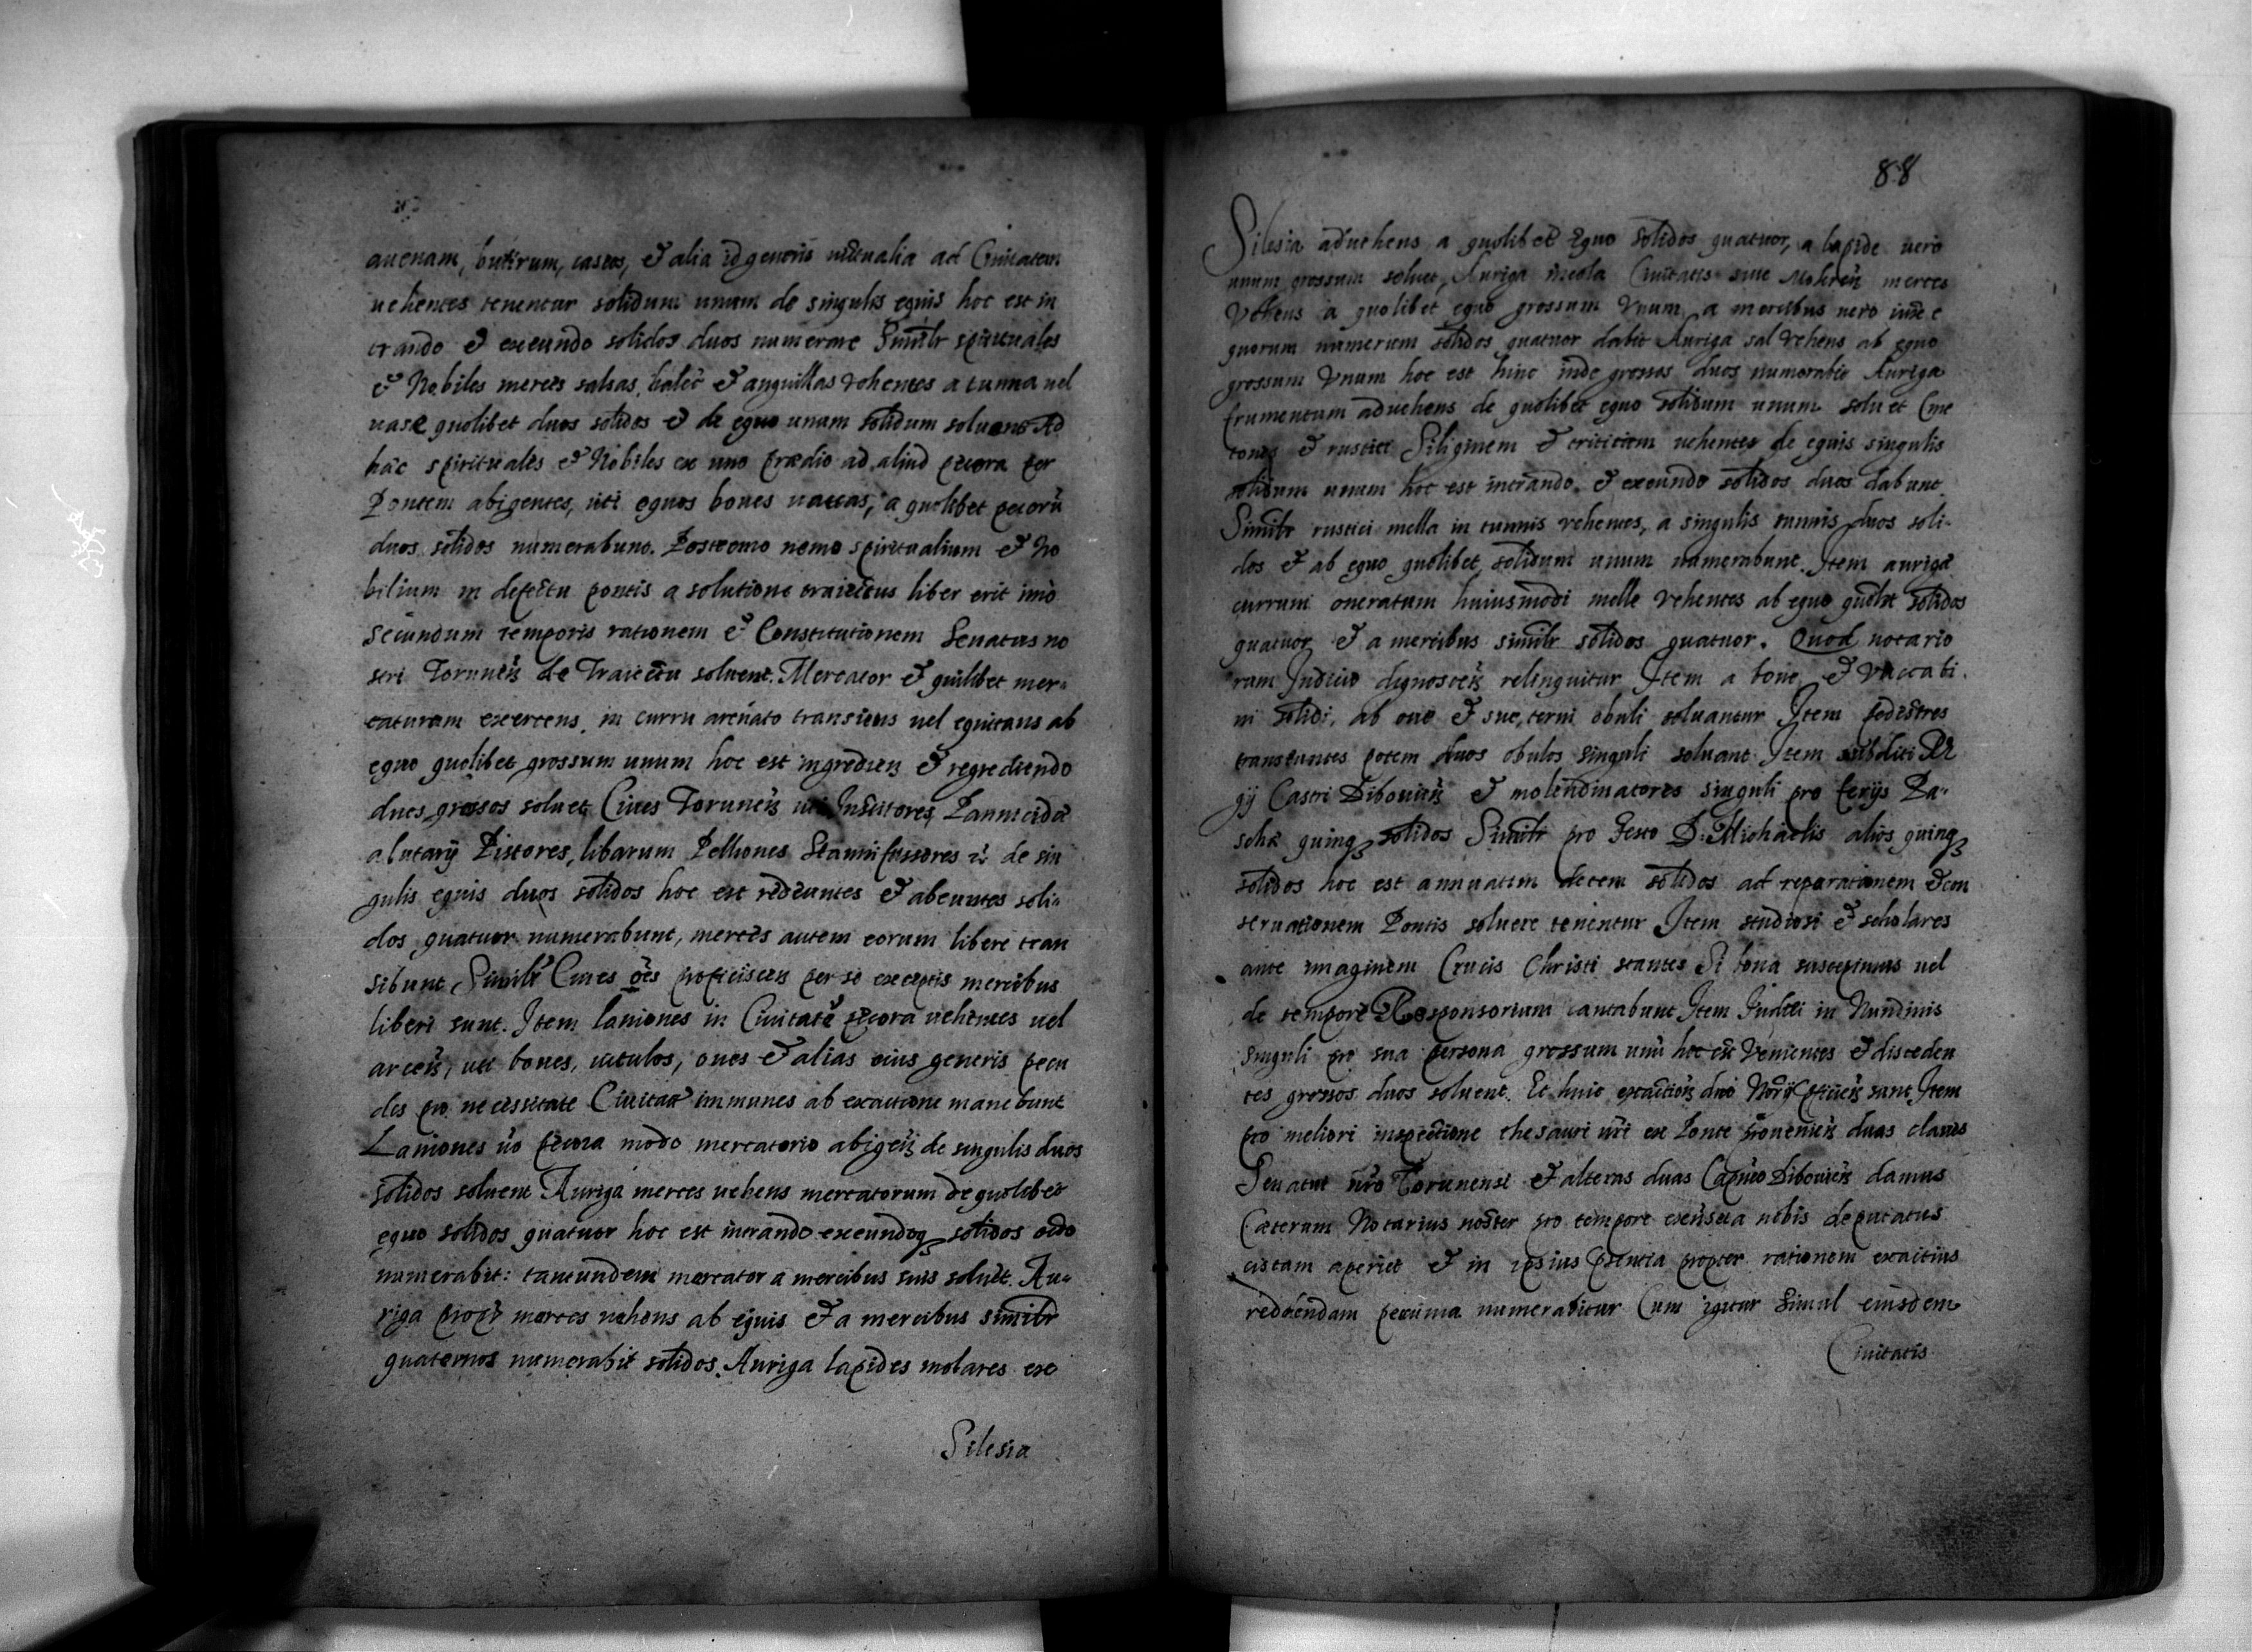 auenam, butirum, caseos, et alia id generis uictualia ad Ciuitatem
uehentes tenentur solidum unum de singulis equis hoc est in
trando et exeundo solidos duos numerare Similr spirituales
et Nobiles merces salsas, halec et anguillas vehentes a tunna uel
uase quolibet duos solidos et de equo unum solidum soluent Ad
hæc spirituales et Nobiles ex uno prædio ad aliud pecora per
Pontem abigentes, uti equos boues uaccas, a quolibet pecorū
duos solidos numerabunt. Postremo nemo spiritualium et No
bilium in defectu pontis a solutione traiectus liber erit imò
secundum temporis rationem et Constitutionem Senatus no
stri Torunen̄ de Traiectu soluent. Mercator et quilibet mer-
caturam exercens, in curru arenato transiens uel equitans ab
equo quolibet grossum unum hoc est ingredien̄ et regrediendo
duos grossos soluet Ciues Torunen̄ uti Institores, Pannicidæ
alutarij Pistores, libarum Pelliones Stannifusores de sin
gulis equis duos solidos hoc est redeuntes et abeuntes soli-
dos quatuor numerabunt, merces autem eorum libere tran
sibunt Similr Ciues oēs proficiscen̄ per se exceptis mercibus
liberi sunt. Item laniones in Ciuitatē pecora uehentes uel
arcen̄, uti boues, uitulos, oues et alias eius generis pecu
des pro necessitate Ciuitatis immunes ab exactione manebunt
Laniones uō pecora modo mercatorio abigen̄ de singulis duos
solidos soluent Auriga merces uehens mercatorum de quolibet
equo solidos quatuor hoc est intrando exeundoqȝ solidos octo
numerabit: tantundem mercator a mercibus suis soluet. Au-
riga merces uehens ab equis et a mercibus similr
quaternos numerabit solidos. Auriga lapides molares ex
Silesia
88
Silesia aduehens a quolibet equo solidos quatuor, a lapide uero
unum grossum soluet, Auriga incola Ciuitatis siue merces
Vehens a quolibet equo grossum Vnum, a mercibus uero
quorum numerum solidos quatuor dabit Auriga sal vehens ab equo
grossum Vnum hoc est hinc inde grossos duos numerabit Auriga
frumentum aduehens de quolibet equo solidum unum soluet Cme
tones et rustici Siliginem et triticum uehentes de equis singulis
solidum unum hoc est intrando et exeundo solidos duos dabunt.
Similr rustici mella in tunnis vehentes, a singulis tunnis duos soli-
dos et ab equo quolibet solidum unum numerabunt. Item aurigæ
currum oneratum huiusmodi melle vehentes ab equo solidos
quatuor et a mercibus similr solidos quatuor. Quod notario
rum Judicio dignoscen̄ relinquitur Item a boue et vacca bi-
ni solidi, ab oue et sue, terni oboli soluantur Item pedestres
transeuntes potem duos obulos singuli soluant Item subditi Re
gij Castri Dibouien̄ et molendinatores singuli pro ferijs Pa-
schæ quinqȝ solidos Similr pro Festo D: Michaelis alios quinqȝ
solidos hoc est annuatim decem solidos ad reparationem et con
seruationem Pontis soluere tenentur Item studiosi et scholares
ante imaginem Crucis Christi stantes Si bona suscepimus uel
de tempore Responsorium cantabunt Item Judæi in Nundinis
singuli pro sua persona grossum unū hoc est Venientes et disceden
tes grossos duos soluent. Et huic exactioni duo sunt Item
pro meliori inspectione thesauri uri ex Ponte prouenien̄ duas claues
Senatui nrō Torunensi et alteras duas Dibouien̄ damus
Cæterum Notarius noster pro tempore a nobis deputatus
cistam aperiet et in ipsius propter rationem exactius
reddendam pecunia numerabitur Cum igitur Simul eiusdem
Ciuitatis